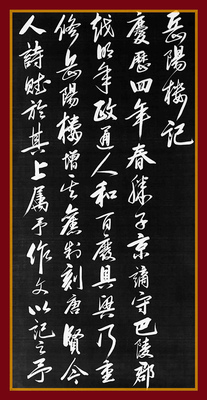 岳陽樓記
慶歷四年春滕子京謫守巴陵郡
越明年政通人和百廢具興乃重
修岳陽樓增其舊制刻唐賢今
人詩賦於其上屬予作文以記之予